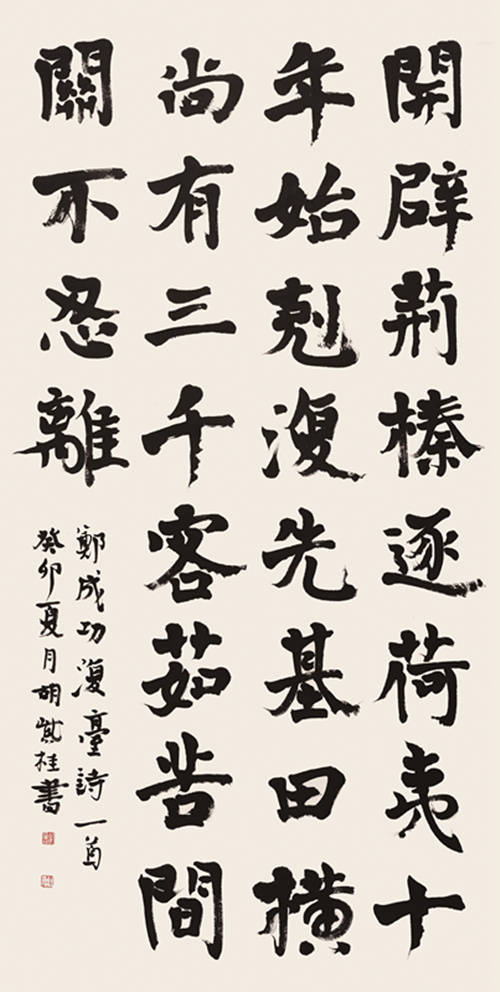 開辟荊榛逐荷夷十
年始剋復先基田橫
尚有三千客茹苦間
關不忍離
鄭成功復臺詩一首
癸卯夏月胡紫桂書